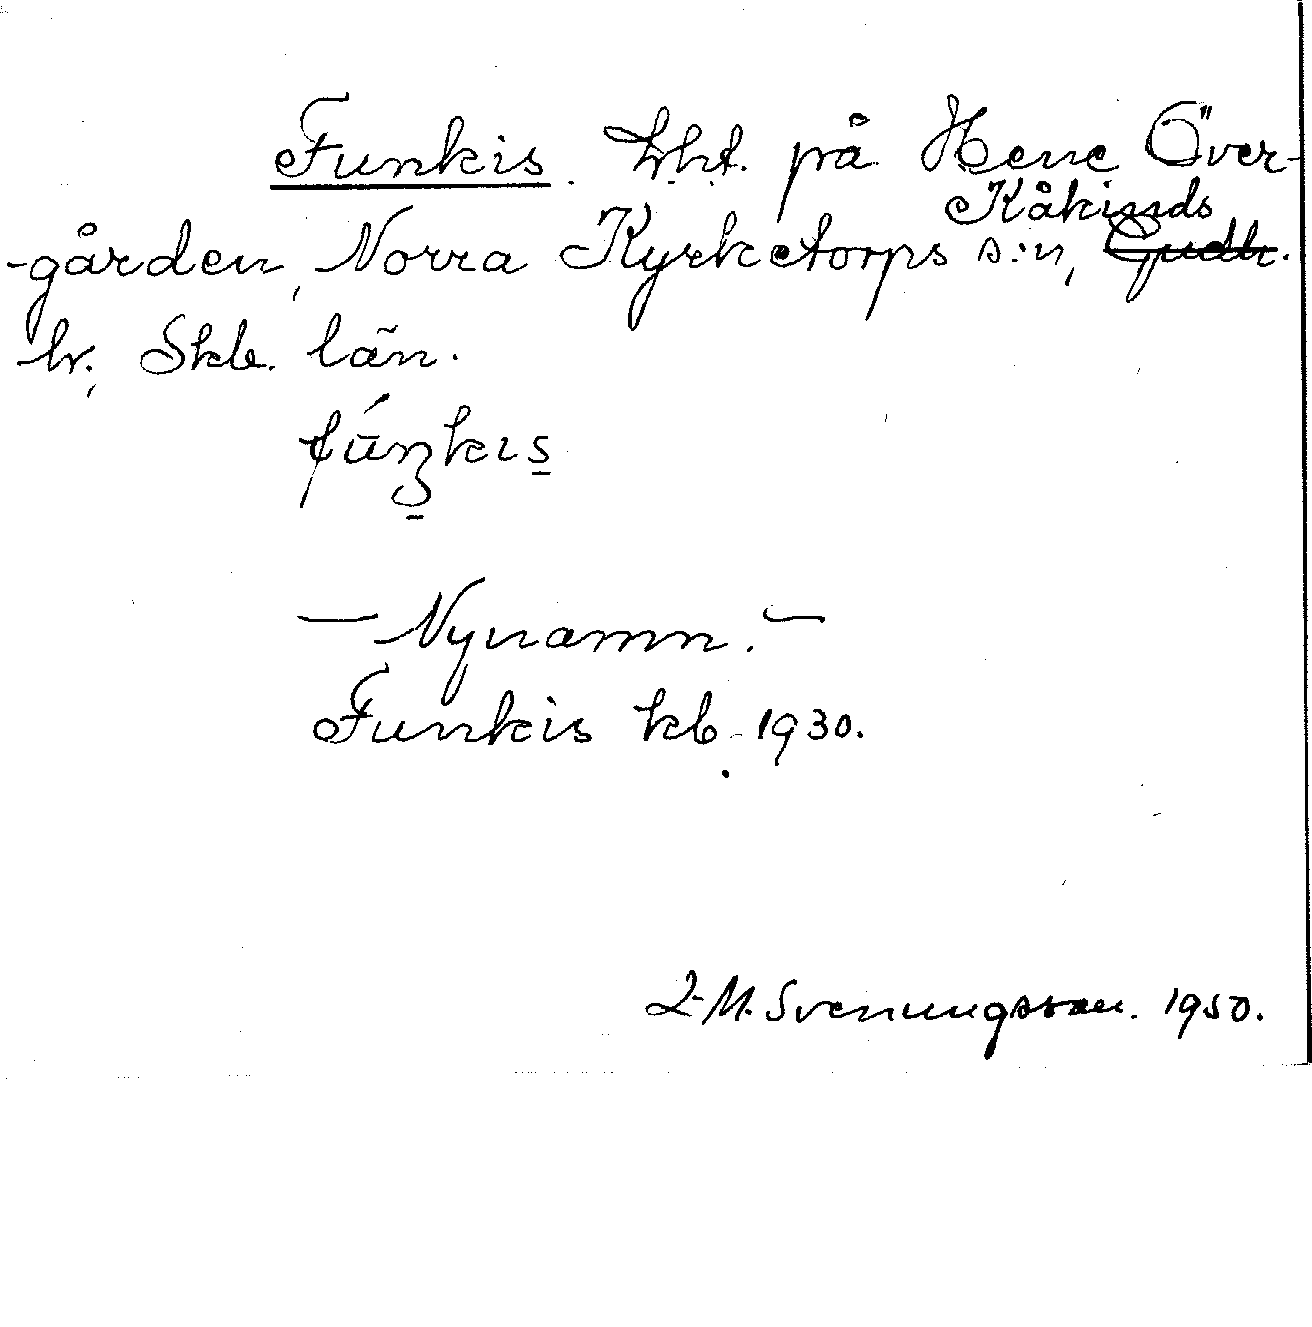 Funkis. Lht. på Hene Över-
-gården, Norra Kyrketorps s:n, Kåkinds Gudh.
hr. Skb. län.
fúŋkıs
— Nynamn. —
Funkis kb. 1930.
L-M. Svenungsson. 1950.